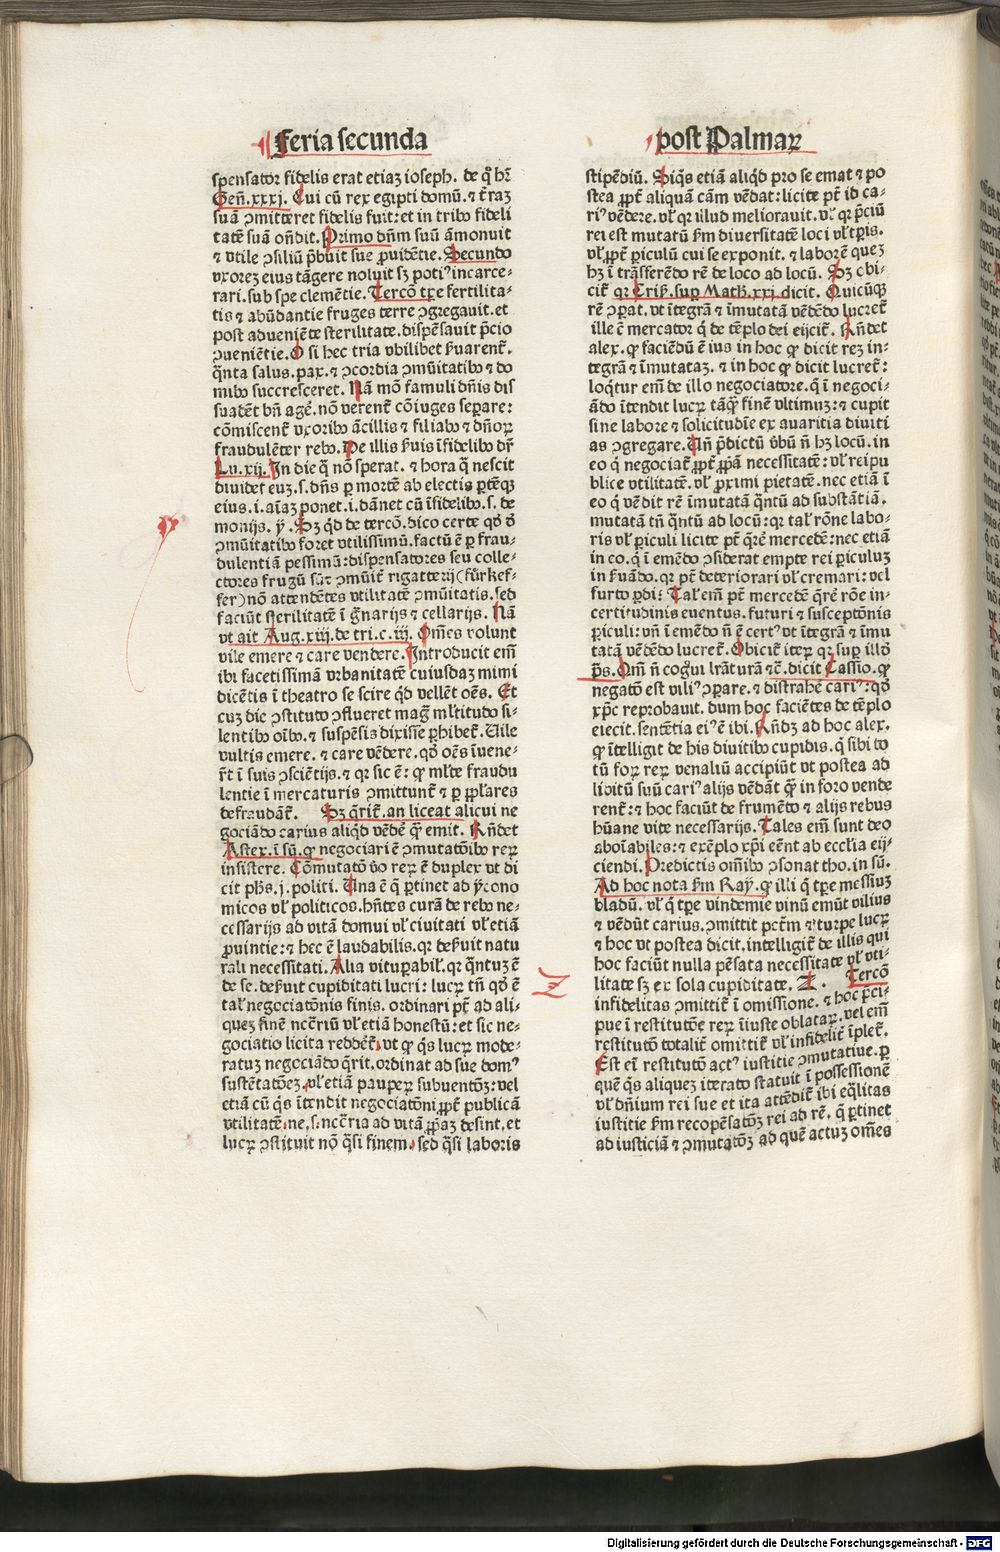 Feria secunda
post Palmaꝝ
spensator fidelis erat etiaꝫ ioseph. de q̄ hr̄
Geñ. xxxj. Cui cū rex egipti domū. ⁊ t̄raꝫ
suā ꝯmitteret fidelis fuit: et in tribꝰ fideli
tatē suā oñdit. Primo dñm suū āmonuit
⁊ vtile ꝯsiliū p̄buit sue ꝓuidētie. Secundo
vxoreꝫ eius tāgere noluit sꝫ potiꝰ incarce⸗
rari. sub spe clemētie. Tercō tp̄e fertilita⸗
tis ⁊ abūdantie fruges terre ꝯgregauit. et
post adueniēte sterilitate. dispēsauit p̄cio
ꝯueniētie. O si hec tria vbilibet ẜuarent̄.
q̄nta salus. pax. ⁊ ꝯcordia ꝯmūitatibꝰ ⁊ do
mibꝰ succresceret. Nā mō famuli dñis dis
suadēt bñ agē. nō verent̄ cōiuges separe:
cōmiscent̄ vxoribꝰ ācillis ⁊ filiabꝰ ⁊ dñoꝝ
fraudulēter rebꝰ. De illis ẜuis īfidelibꝰ dr̄
Lu. xij. In die q̄ nō sperat. ⁊ hora q̄ nescit
diuidet euꝫ. s. dñs ꝑ mortē ab electis ꝑtēqꝫ
eius. i. aīaꝫ ponet. i. dānet cū īfidelibꝰ. s. de
monijs. ỹ. Sꝫ qd̄ de tercō. dico certe qd̓ ī
ꝯmūitatibꝰ foret vtilissimū. factū ē ꝑ frau⸗
dulentiā pessimū: dispensatores seu colle⸗
ctores frugū sūt ꝯmūit̄ rigatterij (fürkef⸗
fer) nō attendētes vtilitatē ꝯmūitatis. sed
faciūt sterilitatē ī gnarijs ⁊ cellarijs. Nā
vt ait Aug. xiij. de tri. c. iij. Om̄es volunt
vile emere ⁊ care vendere. Introducit em̄
ibi facetissimā vrbanitatē cuiusdaꝫ mimi
dicētis ī theatro se scire qd̄ vellēt oēs. Et
cuꝫ die ꝯstituto ꝯflueret mag̃ ml̓titudo si⸗
lentibꝰ oībꝰ. ⁊ suspēsis dixisse ꝑhibet̄. Vile
vultis emere. ⁊ care vēdere. qd̓ oēs īuene⸗
r̄t ī suis ꝯsciētijs. ⁊ qꝛ sic ē: ꝙ ml̓te fraudu
lentie ī mercaturis ꝯmittunt̄ ⁊ ꝑ ꝓpl̓ares
defraudāt̄. Sꝫ q̄rit̄. an liceat alicui ne
gociādo carius aliqd̄ vēdē q̄ꝫ emit. Rñdet
Astex. ī sū. ꝙ negociari ē ꝯmutatōībꝰ reꝝ
insistere. Cōmutatō v̓o reꝝ ē duplex vt di
cit ph̓s. j. politi. Una ē q̄ ꝑtinet ad ycono
micos vl̓ politicos. hñtes curā de rebꝰ ne⸗
cessarijs ad vitā domui vl̓ ciuitati vl̓ etiā
ꝓuintie: ⁊ hec ē laudabilis. qꝛ deẜuit natu
rali necessitati. Alia vituꝑabil̓. qꝛ q̄ntuꝫ ē
de se. deẜuit cupiditati lucri: lucꝝ tñ qd̓ ē
tal̓ negociatōnis finis. ordinari pt̄ ad ali⸗
queꝫ finē nc̄c̄riū vl̓ etiā honestū: et sic ne⸗
gociatio licita reddet̄. vt ꝙ q̄s lucꝝ mode⸗
ratuꝫ negociādo q̄rit. ordinat ad sue domꝰ
sustētatōeꝫ. vl̓ etiā pauꝑeꝝ subuentōꝫ: vel
etiā cū q̄s ītendit negociatōni ꝓpt̄ publicā
vtilitatē. ne. s. nc̄c̄ria ad vitā ꝓpͣaꝫ desint. et
lucꝝ ꝯstituit nō q̄si finem. sed q̄si laboris
stipēdiū. Siq̄s etiā aliqd̄ pro se emat ⁊ po
stea ꝓpt̄ aliquā cām vēdat: licite pt̄ id ca⸗
riꝰ vēdere. vl̓ qꝛ illud meliorauit. vl̓ qꝛ p̄ciū
rei est mutatū ẜm diuersitatē loci vl̓ tp̄is.
vl̓ ꝓpt̄ ꝑiculū cui se exponit. ⁊ laborē queꝫ
hꝫ ī trāsferēdo rē de loco ad locū. Sꝫ obi⸗
cit̄ qꝛ Cris. suꝑ Math̓. xxj. dicit. Quicūqꝫ
rē ꝯꝑat. vt ītegrā ⁊ īmutatā vēdēdo lucret̄
ille ē mercator q̄ de tēplo dei eijcit̄. Rñdet
alex. ꝙ faciēdū ē ius in hoc ꝙ dicit reꝫ in⸗
tegrā ⁊ īmutataꝫ. ⁊ in hoc ꝙ dicit lucret̄:
loq̄tur em̄ de illo negociatore. q̄ ī negoci⸗
ādo ītendit lucꝝ tāq̄ꝫ finē vltimuꝫ: ⁊ cupit
sine labore ⁊ solicitudīe ex auaritia diuiti
as ꝯgregare. Uñ p̄dictū v̓bū ñ hꝫ locū. in
eo q̄ negociat̄ ꝓpt̄ ꝓpͣā necessitatē: vl̓ rei pu
blice vtilitatē. vl̓ ꝓximi pietatē. nec etiā ī
eo q̄ vēdit rē īmutatā q̄ntū ad substātiā.
mutatā tñ q̄ntū ad locū: qꝛ tal̓ rōne labo⸗
ris vl̓ ꝑiculi licite pt̄ q̄rē mercedē: nec etiā
in eo. q̄ ī emēdo ꝯsiderat empte rei ꝑiculuꝫ
in ẜuādo. qꝛ pt̄ deteriorari vl̓ cremari: vel
furto ꝑdi: Tal̓ em̄ pt̄ mercedē q̄rē rōe in⸗
certitudinis euentus. futuri ⁊ susceptōnis
ꝑiculi: vñ ī emēdo ñ ē certꝰ vt ītegrā ⁊ īmu
tatā vēdēdo lucret̄. Obicit̄ iteꝝ qꝛ suꝑ illd̓
ps̄. Qm̄ ñ cogui lrāturā ⁊c̄. dicit Cassio. ꝙ
negatō est viliꝰ ꝯꝑare. ⁊ distrahē cariꝰ: qd̓
xp̄c reprobauit. dum hoc faciētes de tēplo
eiecit. sentētia eiꝰ ē ibi. Rñdꝫ ad hoc alex.
ꝙ ītelligit de his diuitibꝰ cupidis. q̄ sibi to
tū foꝝ reꝝ venaliū accipiūt vt postea ad
libitū suū cariꝰ alijs vēdāt q̄ꝫ in foro vende
rent̄: ⁊ hoc faciūt de frumēto ⁊ alijs rebus
hūane vite necessarijs. Tales em̄ sunt deo
aboīabiles: ⁊ exēplo xp̄i eēnt ab ecclīa eij⸗
ciendi. Predictis om̄ibꝰ ꝯsonat tho. in sū.
Ad hoc nota ẜm Ray. ꝙ illi q̄ tp̄e messiuꝫ
bladū. vl̓ q̄ tp̄e vindemie vinū emūt vilius
⁊ vēdūt carius. ꝯmittit pct̄m ⁊ turpe lucꝝ
⁊ hoc vt postea dicit. intelligit̄ de illis qui
hoc faciūt nulla pēsata necessitate vl̓ vti⸗
litate sꝫ ex sola cupiditate. Z. Tercō
infidelitas ꝯmittit̄ ī omissione. ⁊ hoc p̄ci⸗
pue ī restitutōe reꝝ īiuste oblataꝝ. vel em̄
restitutō totalit̄ omittit̄ vl̓ infidelit̄ īplet̄.
Est eī restitutō actꝰ iustitie ꝯmutatiue. ꝑ
quē q̄s aliqueꝫ iterato statuit ī possessionē
vl̓ dñium rei sue et ita attēdit̄ ibi eq̄litas
iustitie ẜm recopēsatōꝫ rei ad rē. q̄ ꝑtinet
ad iusticiā ⁊ ꝯmutatōꝫ ad quē actuꝫ om̄es
Z
Digitalisierung gefördert durch die Deutsche Forschungsgemeinschaft - DFG